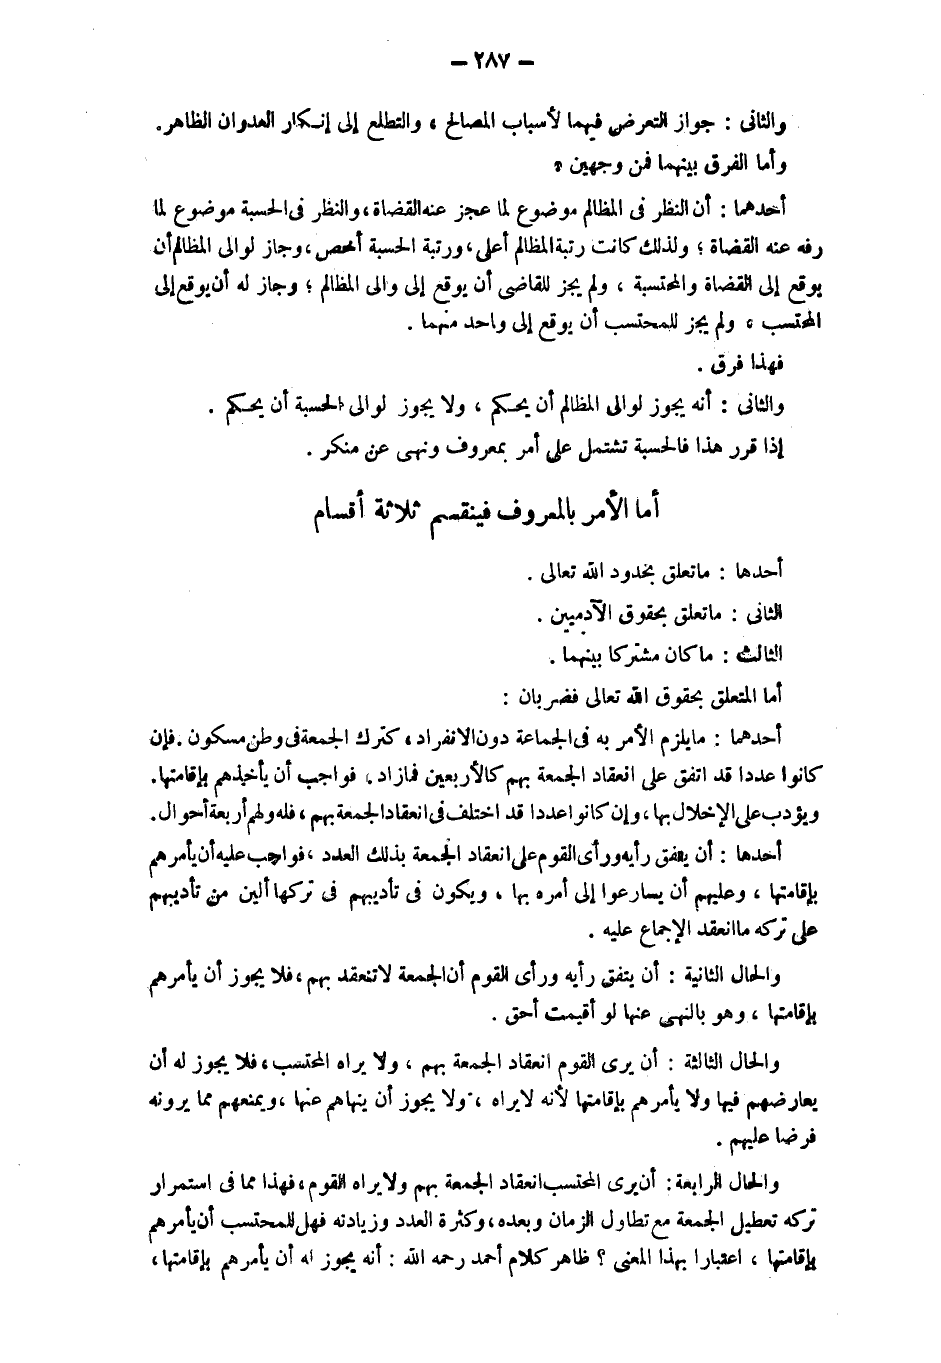 — ٢٨٧ —
والثانى : جواز التعرض فيهما لأسباب المصالح ، والتطلع إلى إنكار العدوان الظاهر.
وأما الفرق بينهما فمن وجهين ،
أحدهما : أن النظر فى المظالم موضوع لما عجز عنه القضاة، والنظر فى الحسبة موضوع لما
رفه عنه القضاة ؛ ولذلك كانت رتبة المظالم أعلى، ورتبة الحسبة أخص، وجاز لوالى المظالم أن
يوقع إلى القضاة والمحتسبة ، ولم يجز للقاضى أن يوقع إلى والى المظالم ؛ وجاز له أن يوقع إلى
المحتسب ، ولم يجز للمحتسب أن يوقع إلى واحد منهما .
فهذا فرق .
والثانى : أنه يجوز لوالى المظالم أن يحكم ، ولا يجوز لوالى الحسبة أن يحكم .
إذا قرر هذا فالحسبة تشتمل على أمر بمعروف ونهى عن منكر .
أما الأمر بالمعروف فينقسم ثلاثة أقسام
أحدها : ماتعلق بحدود الله تعالى .
الثانى : ماتعلق بحقوق الآدميين .
الثالث : ماكان مشتركا بينهما .
أما المتعلق بحقوق الله تعالى فضربان :
أحدهما : مايلزم الأمر به فى الجماعة دون الانفراد ، كترك الجمعة فى وطن مسكون . فإن
كانوا عددا قد اتفق على انعقاد الجمعة بهم كالأربعين فمازاد. فواجب أن يأخذهم بإقامتها.
ويؤدب على الإخلال بها، وإن كانوا عددا قد اختلف فى انعقاد الجمعة بهم، فله ولهم أربعة أحوال.
أحدها : أن يتفق رأيه ورأى القوم على انعقاد الجمعة بذلك العدد ، فواجب عليه أن يأمرهم
بإقامتها ، وعليهم أن يسارعوا إلى أمره بها ، ويكون فى تأديبهم فى تركها ألين من تأديبهم
على تركه ماانعقد الإجماع عليه .
والحال الثانية : أن يتفق رأيه ورأى القوم أن الجمعة لاتنعقد بهم، فلا يجوز أن يأمرهم
بإقامتها ، وهو بالنهى عنها لو أقيمت أحق .
والحال الثالثة : أن يرى القوم انعقاد الجمعة بهم ، ولا يراه المحتسب، فلا يجوز له أن
يعارضهم فيها ولا يأمرهم بإقامتها لأنه لايراه ، ولا يجوز أن ينهاهم عنها ، ويمنعهم مما يرونه
فرضا عليهم .
والحال الرابعة : أن يرى المحتسب انعقاد الجمعة بهم ولا يراه القوم، فهذا مما فى استمرار
تركه تعطيل الجمعة مع تطاول الزمان وبعده، وكثرة العدد وزيادته فهل للمحتسب أن يأمرهم
بإقامتها ، اعتبارا بهذا المعنى ؟ ظاهر كلام أحمد رحمه الله : أنه يجوز له أن يأمرهم بإقامتها ،